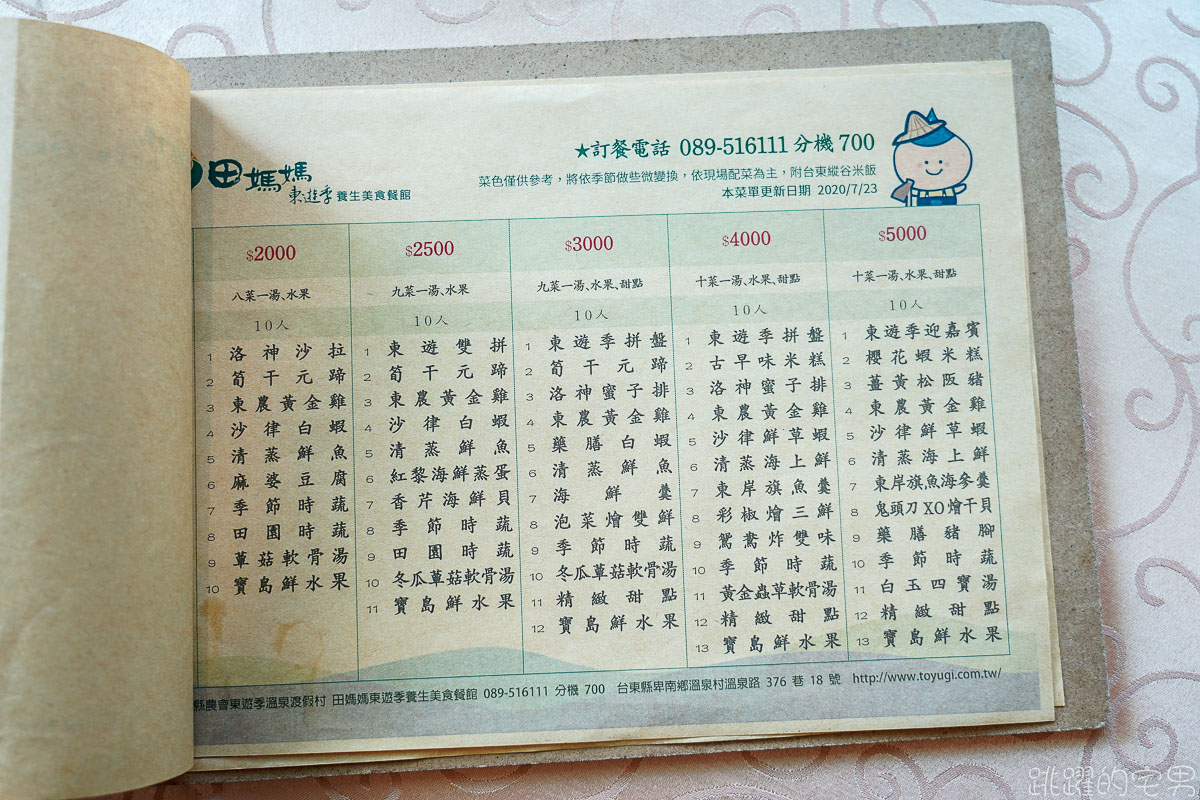 ★訂餐電話 089-516111 分機 700
菜色僅供參考，將依季節做些微變換，依現場配菜為主，附台東縱谷米飯
本菜單更新日期 2020/7/23
田媽媽
東遊季 養生美食餐館
$2000
八菜一湯、水果
10人
1 洛神沙拉
2 筍干元蹄
3 東農黃金雞
4 沙律白蝦
5 清蒸鮮魚
6 麻婆豆腐
7 季節時蔬
8 田園時蔬
9 蕈菇軟骨湯
10 寶島鮮水果
$2500
九菜一湯、水果
10人
1 東遊雙拼
2 筍干元蹄
3 東農黃金雞
4 沙律白蝦
5 清蒸鮮魚
6 紅藜海鮮蒸蛋
7 香芹海鮮貝
8 季節時蔬
9 田園時蔬
10 冬瓜蕈菇軟骨湯
11 寶島鮮水果
$3000
九菜一湯、水果、甜點
10人
1 東遊季拼盤
2 筍干元蹄
3 洛神蜜子排
4 東農黃金雞
5 藥膳白蝦
6 清蒸鮮魚
7 海鮮羹
8 泡菜燴雙鮮
9 季節時蔬
10 冬瓜蕈菇軟骨湯
11 精緻甜點
12 寶島鮮水果
$4000
十菜一湯、水果、甜點
10人
1 東遊季拼盤
2 古早味米糕
3 洛神蜜子排
4 東農黃金雞
5 沙律鮮草蝦
6 清蒸海上鮮
7 東岸旗魚羹
8 彩椒燴三鮮
9 鴛鴦炸雙味
10 季節時蔬
11 黃金蟲草軟骨湯
12 精緻甜點
13 寶島鮮水果
$5000
十菜一湯、水果、甜點
10人
1 東遊季迎嘉賓
2 櫻花蝦米糕
3 薑黃松阪豬
4 東農黃金雞
5 沙律鮮草蝦
6 清蒸海上鮮
7 東岸旗魚海參羹
8 鬼頭刀XO燴干貝
9 藥膳豬腳
10 季節時蔬
11 白玉四寶湯
12 精緻甜點
13 寶島鮮水果
縣農會東遊季溫泉渡假村 田媽媽東遊季養生美食餐館 089-516111 分機 700 台東縣卑南鄉溫泉村溫泉路 376 巷 18 號 http://www.toyugi.com.tw/
跳躍的宅男